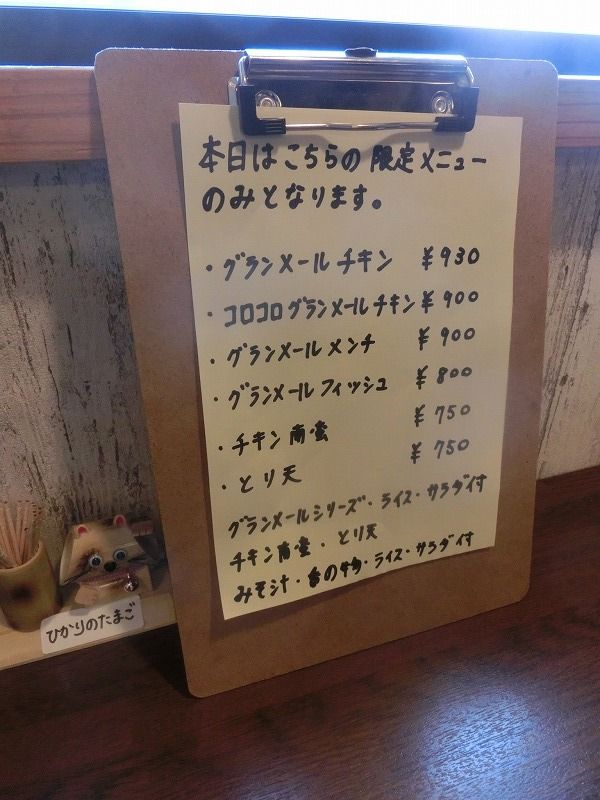 本日はこちらの限定メニュー
のみとなります。
・グランメール チキン ¥930
・コロコログランメールチキン ¥900
・グランメール メンチ ¥900
・グランメール フィッシュ ¥800
・チキン南蛮 ¥750
・とり天 ¥750
グランメールシリーズ・ライス・サラダ付
チキン南蛮・とり天
みそ汁・香の物・ライス・サラダ付
ひかりのたまご